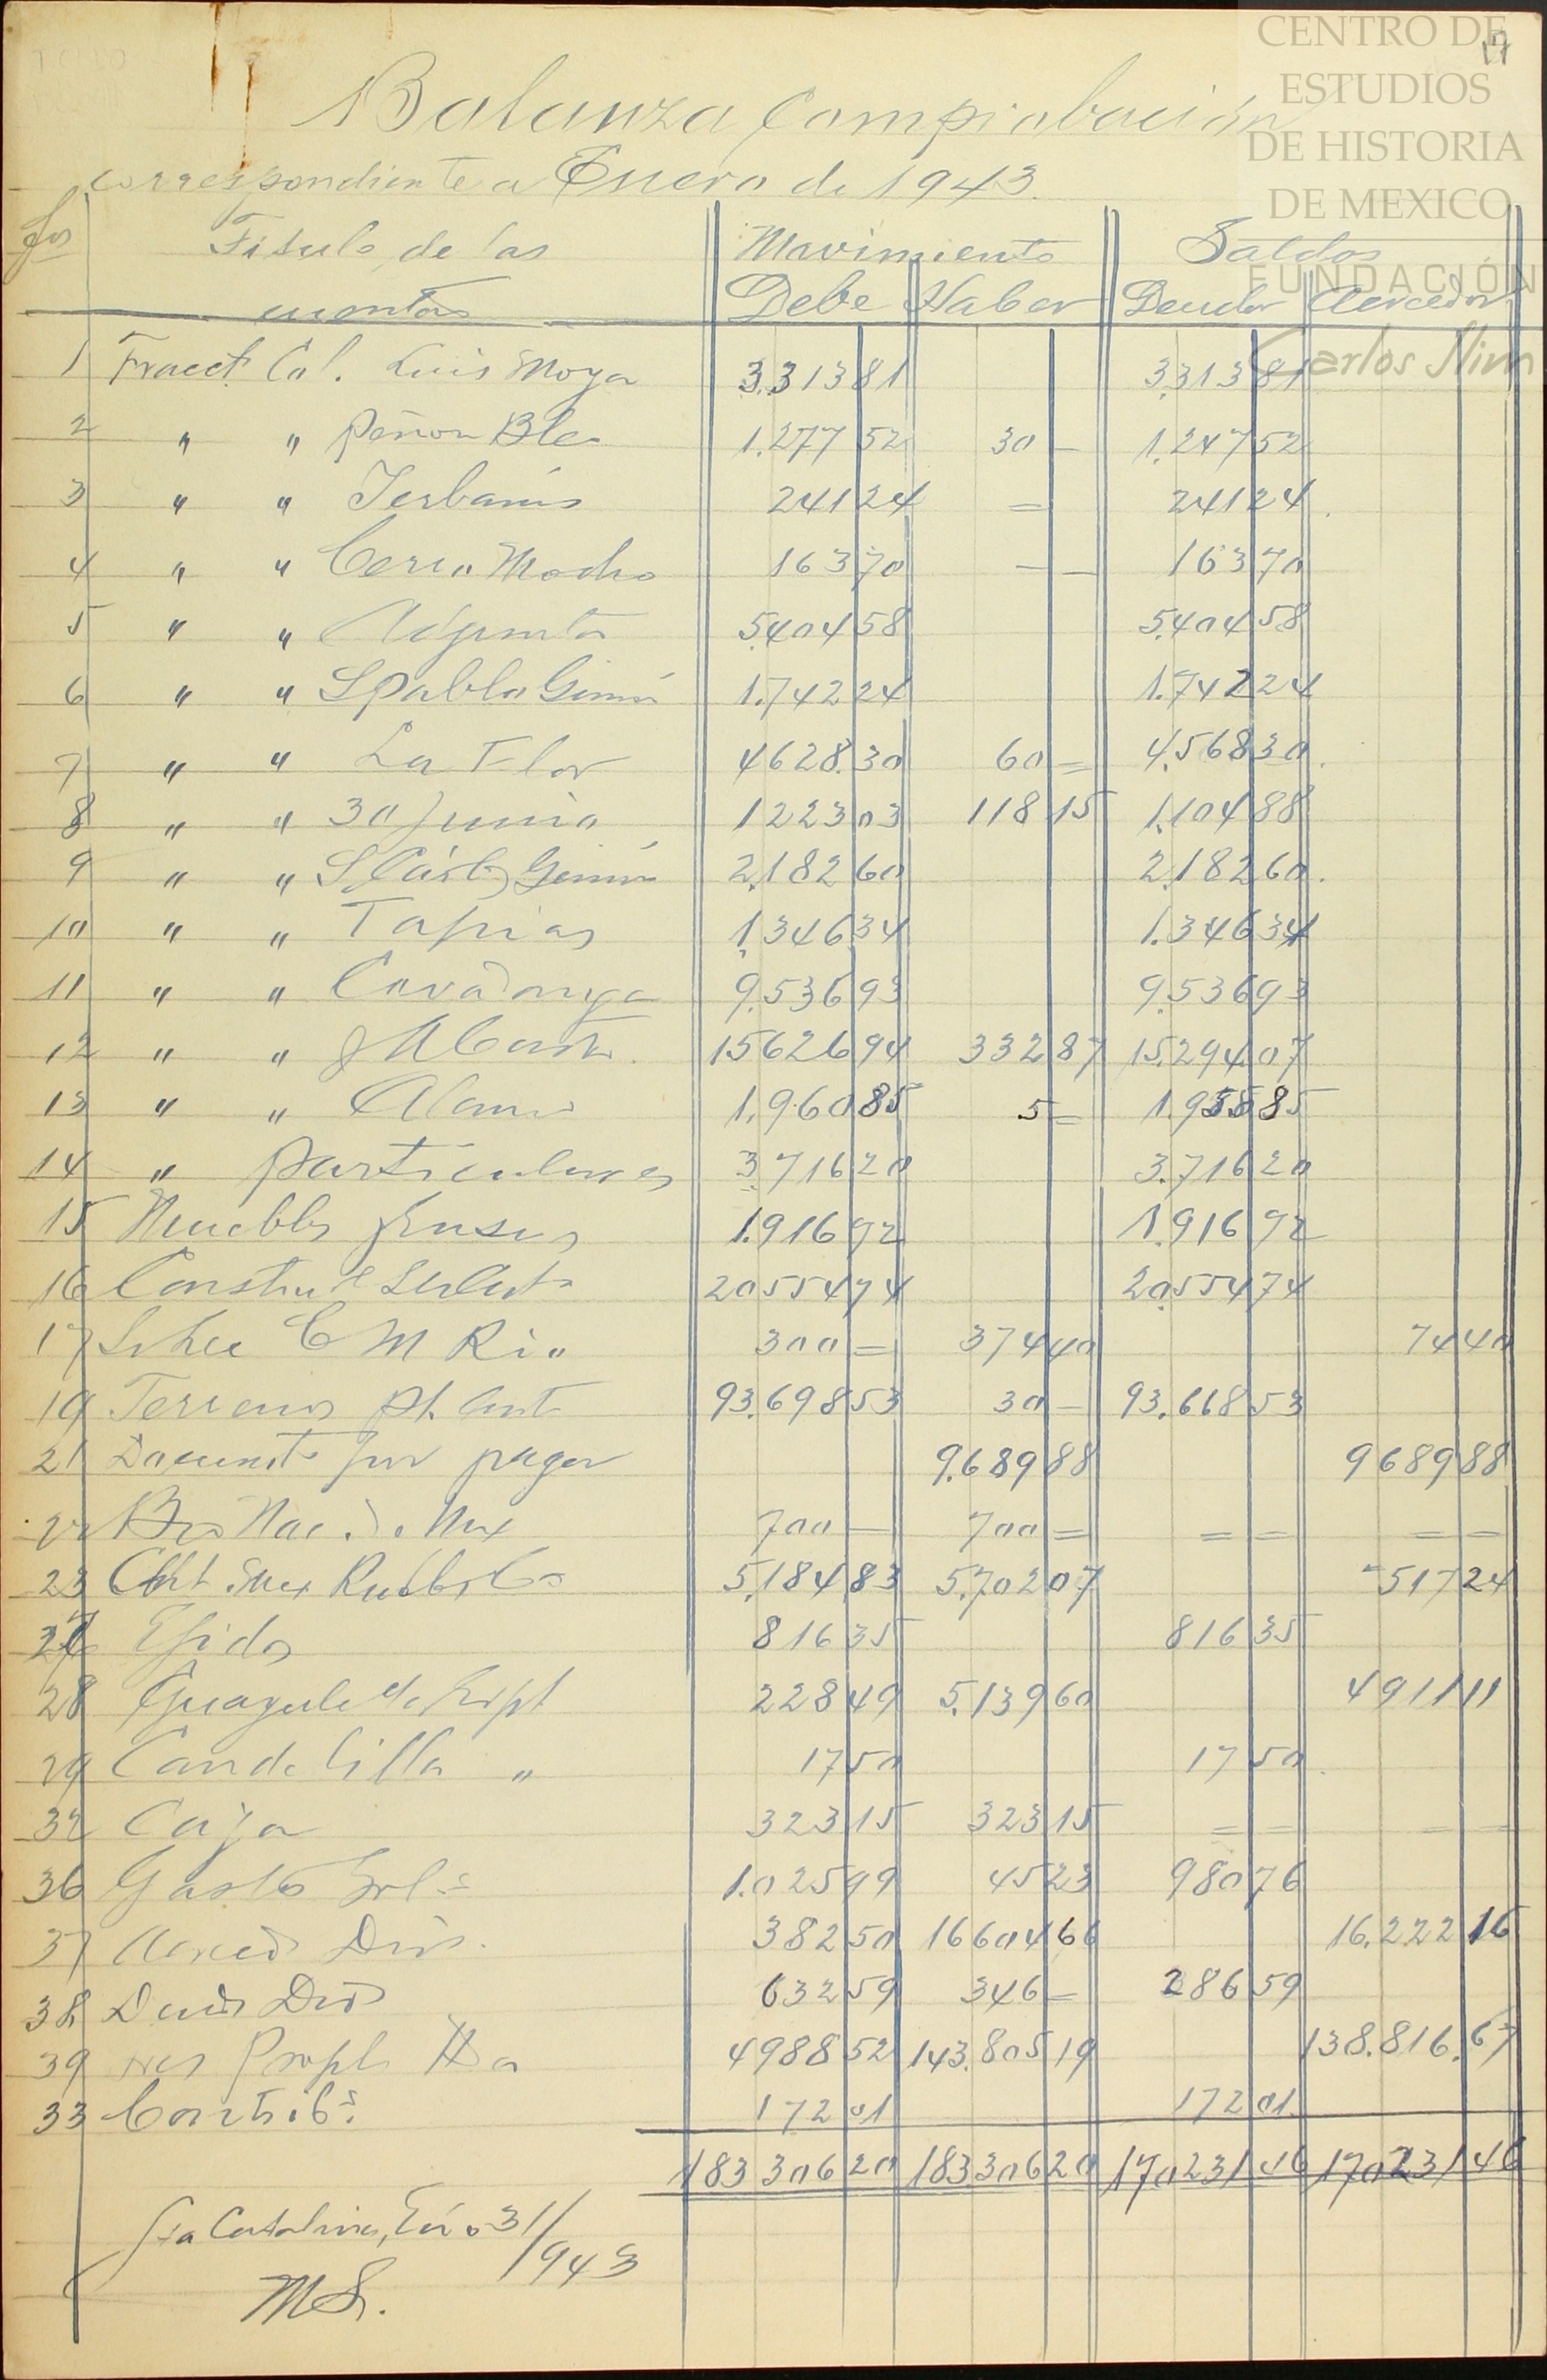 17
CENTRO DE
ESTUDIOS
DE HISTORIA
DE MEXICO
FUNDACIÓN
Carlos Slim
Balanza Comprobación
correspondiente a Enero de 1943.
fos Titulo de las cuentas Movimiento Saldos
Debe Haber Deudor Acreedor
1 Fracct. Col. Luis Moya 3.313 81 3.313 81
2 " " Peñon Blco 1.277 52 30 — 1.247 52
3 " " Yerbanis 241 24 = 241 24
4 " " Cerro Mocho 163 70 — — 163 70
5 " " 5.404 58 5.404 58
6 " " S Pablo 1.742 24 1.742 24
7 " " La Flor 4628.30 60 = 4.568 30
8 " " 30 Junio 1223 03 118 15 1.104 88
9 " " 2.182 60 2.182 60
10 " " Tapias 1.346 34 1.346 34
11 " " Covadonga 9.536 93 9.536 93
12 " " 15626 94 332 87 15.294.07
13 " " Alamo 1.960 85 5 = 1.955 85
14 " Particulares 3.716 20 3.716 20
15 Muebles 1.916 92 1.916 92
16 20554 74 20.554 74
17 300 = 374 40 74 40
19 Terrenos 93.698 53 30 — 93.668 53
21 Documts por pagar 9.689 88 9689 88
Bco Nac. de Mex 700 — 700 = = — = —
23 Mex Rubbr Co 5.184 83 5.702 07 517 24
Ejidos 816 35 816 35
28 Guayule 228 49 5.139 60 4911 11
29 Candelilla " 17 50 17 50
32 Caja 323 15 323 15 = — — —
36 Gastos Grls 1.025 99 45 23 980 76
37 Acreed Divs. 382 50 16604 66 16.222 16
38 Deuds Divs 632 59 346 = 286 59
39 4988 52 143.805 19 138.816.67
33 Contribs. 172 01 172 01
183 306 20 183.306 20 170 231 46 170 231 46
Sta Catalina, Eno 31/943